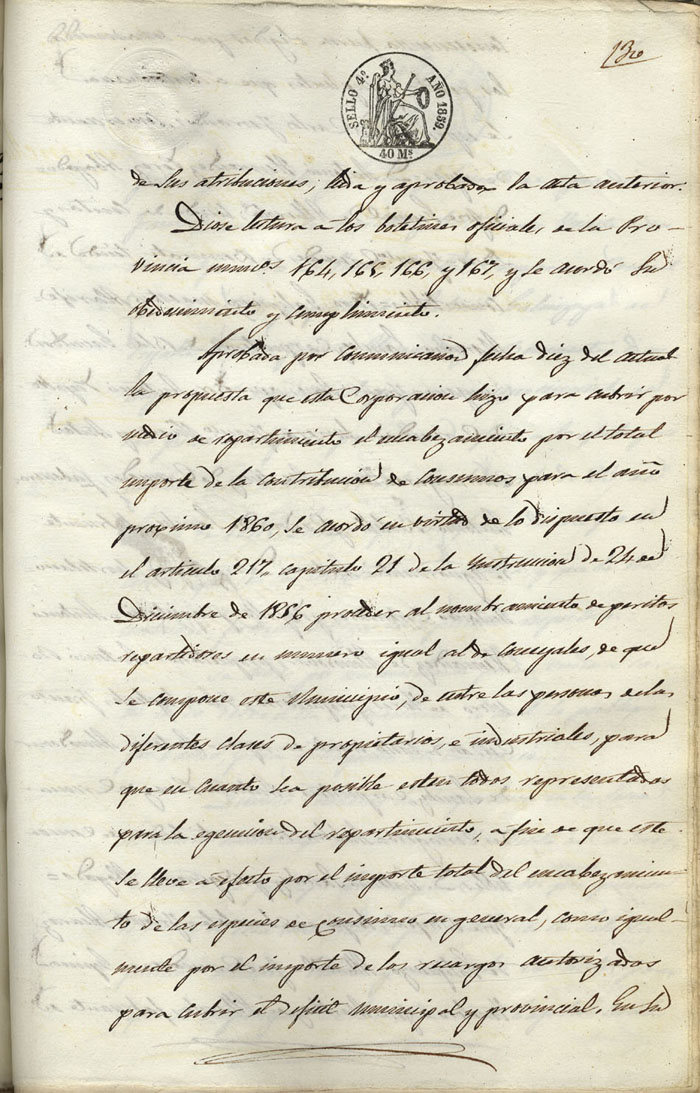 130
SELLO 4º. AÑO 1859.
40 Ms.
de sus atribuciones; leida y aprobada la acta anterior.
Diose lectura a los boletines oficiales, de la Pro-
vincia numos 164, 165, 166, y 167, y se acordó su
obedecimiento y cumplimiento.
Aprobada por comunicacion, fecha diez del actual
la propuesta que esta Corporacion hizo para cubrir por
medio de repartimiento el encabezamiento por el total
importe de la contribucion de consumos para el año
proximo 1860, se acordó en virtud de lo dispuesto en
el articulo 217, capitulo 21 de la Instruccion de 24 de
Diciembre de 1856 proceder al nombramiento de peritos
repartidores en numero igual al de concejales, de que
se compone este Municipio, de entre las personas de las
diferentes clases de propietarios, e industriales, para
que en cuanto sea posible esten todos representados
para la egecucion del repartimiento, a fin de que este
se lleve a efecto por el importe total del encabezamien-
to de las especies de consumo en general, como igual-
mente por el importe de los recargos autorizados
para cubrir el deficit municipal y provincial. En su